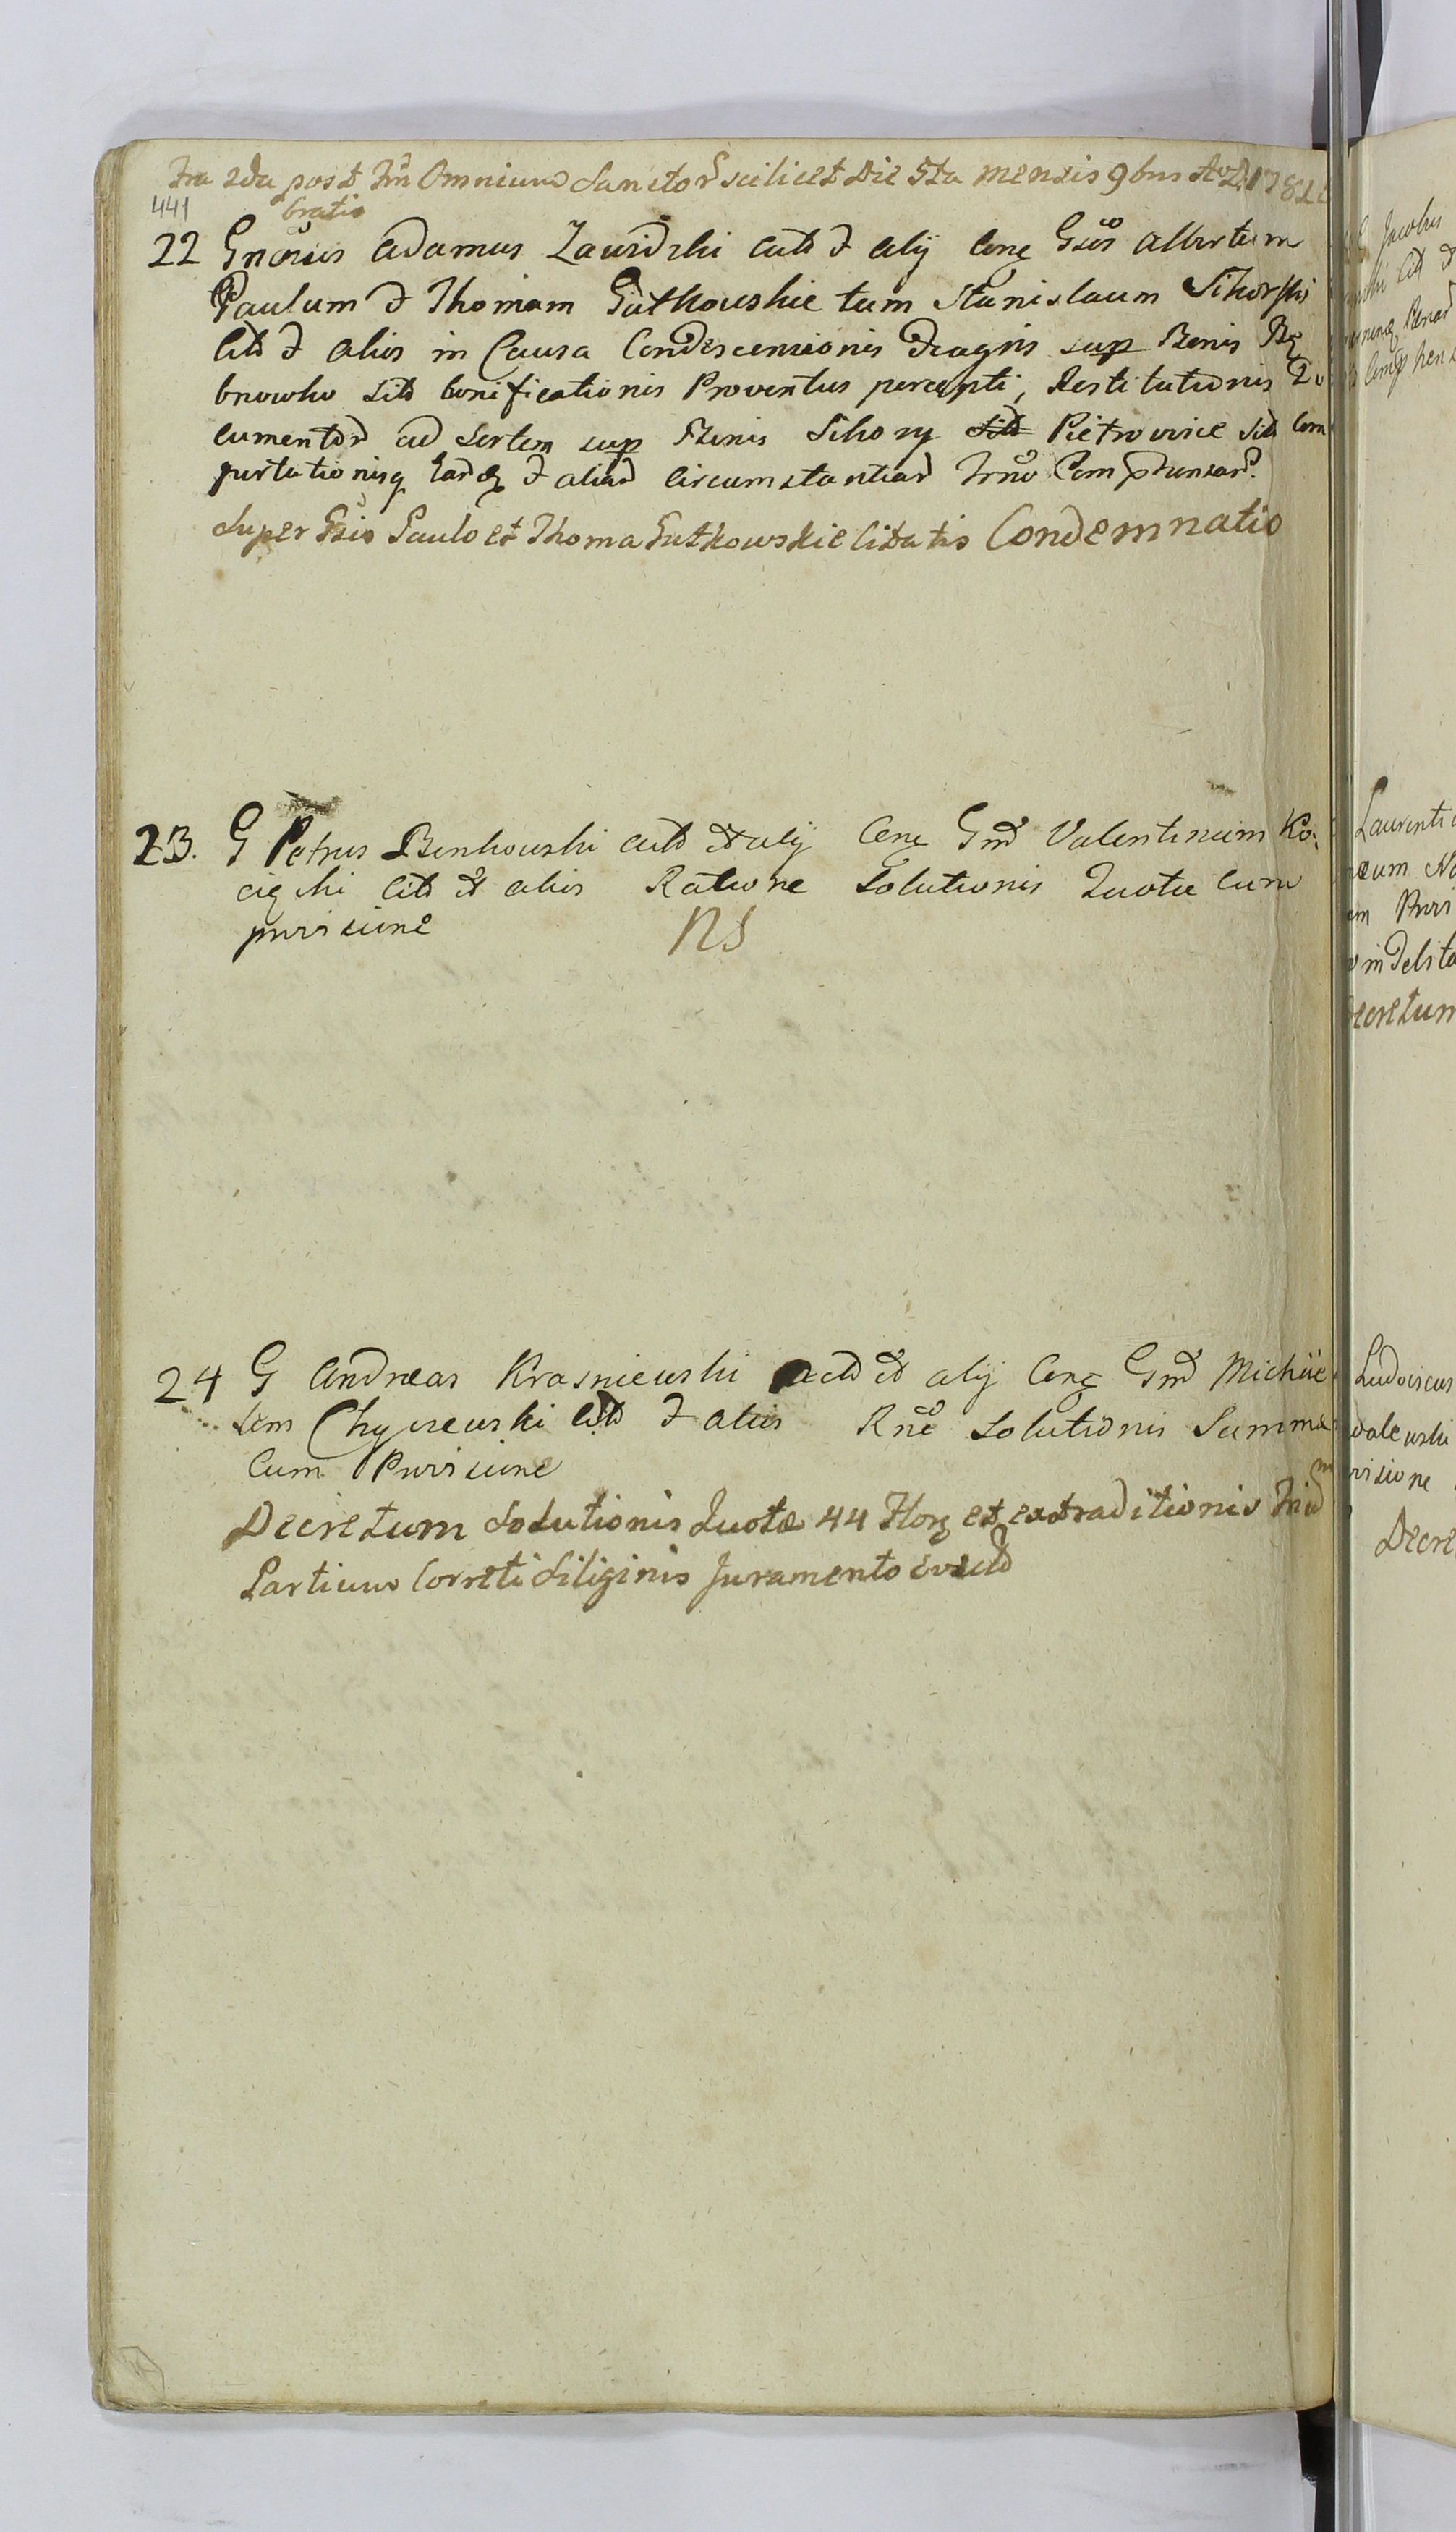 Fra 2da post Fm̃ Omnium Sanctor scilicet Die 5ta mensis 9bris A D 1781
441
22 Gnõsus Adamus Zawidzki actd & alij Conq Gños Albertum
Paulum & Thomam Gutkowskie tum Stanislaum Sikorski
Citd & alios in Causa Condescensionis Dragnis sup Bonis Bę
bnowko sitd bonificationis Proventus percepti, Restitutionis Do
cumentor ad sortem sup Bonis Sikory Pietrowice sitd Com
portationisq Eardq & aliar circumstantiar
Super Gsis Paulo et Thoma Gutkowskie Citatis Condemnatio
23. G Petrus Benkowski actd & alij Conq Gnd Valentinum Ko
cięcki Citd & alios Ratione Solutionis Quotae cum
provisione NS
24 G Andreas Krasniewski actd & alij Conq Gnd Michae
lem Chyczewski Citd & alios Rne Solutionis Summae
Cum Provisione
Decretum Solutionis Quotæ 44 Flor et extraditionis
Partium Correti Siliginis Juramento
Jacobus
Laurenti
Decretum
Ludovicus
walewski
visione
Decre